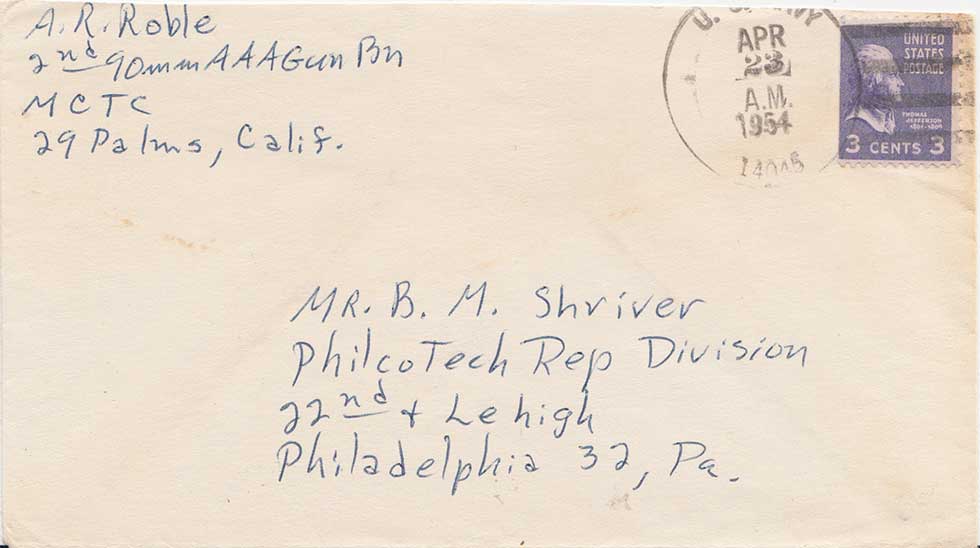 A.R. Roble
2nd 90mm AAA Gun Bn
MCTC
29 Palms, Calif.
U. S. NAVY
APR
23
A.M.
1954
14045
UNITED
STATES
POSTAGE
THOMAS
JEFFERSON
1801-1809
3 CENTS 3
MR. B. M. Shriver
Philco Tech Rep Division
22nd + Lehigh
Philadelphia 32, Pa.